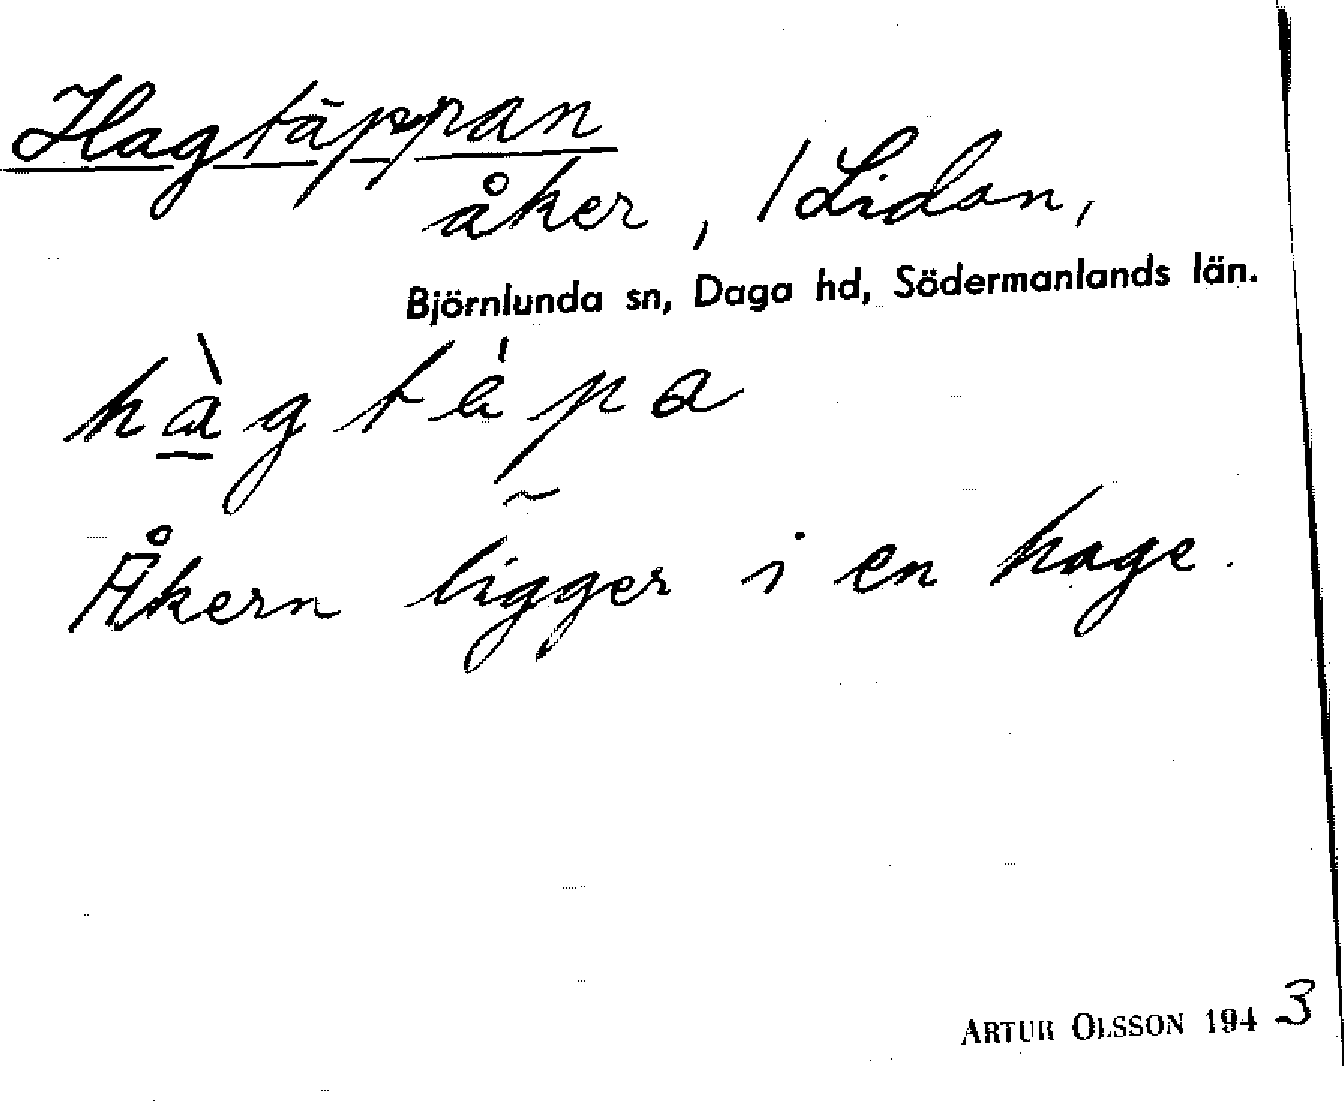 Hagtäppan
åker, / Lidan,
Björnlunda sn, Daga hd, Södermanlands län.
hàgtäpa
Åkern ligger i en hage.
ARTUR OLSSON 1943